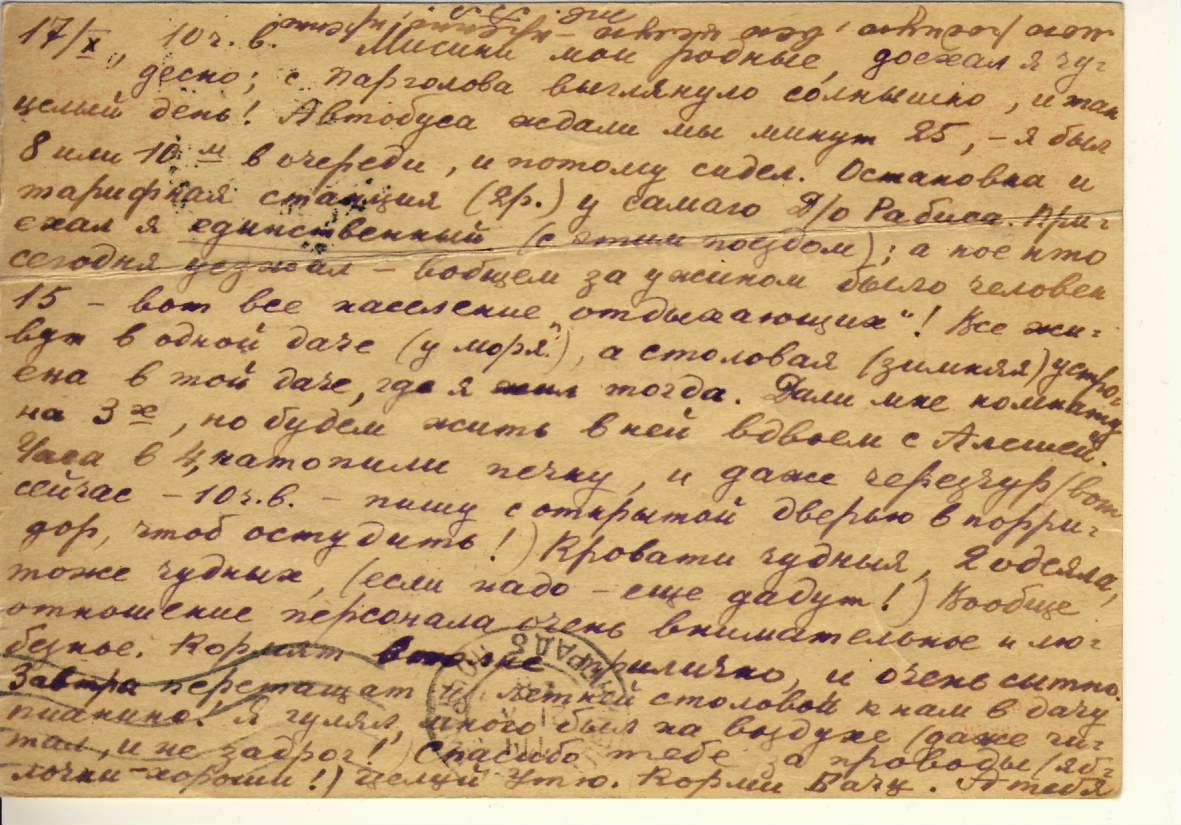 17/X, 10 ч. в. Мисики мои родные, доехал я чу-
десно; с Парголова выглянуло солнышко, и так
целый день! Автобуса ждали мы минут 25, – я был
8 или 10 м в очереди, и потому сидел. Остановка и
тарифная станция (2р.) у самаго Д/о Рабиса. При-
ехал я единственный (с этим поездом); а кое кто
сегодня уезжал – вобщем за ужином было человек
15 – вот все население "отдыхающих"! Все жи-
вут в одной даче (у моря), а столовая (зимняя) устро-
ена в той даче, где я жил тогда. Дали мне комнату
на 3х, но будем жить в ней вдвоем с Алешей.
Часа в 4, натопили печку, и даже черезчур (вот
сейчас – 10 ч. в. – пишу с открытой дверью в корри-
дор, чтоб остудить!) Кровати чудныя, 2 одеяла,
тоже чудных, (если надо – еще дадут!) Вообще
отношение персонала очень внимательное и лю-
безное. Кормят вполне прилично, и очень сытно.
Завтра перетащат из летней столовой к нам в дачу
пианино! Я гулял, много был на воздухе (даже чи-
тал, и не задрог!) Спасибо тебе за проводы (яб-
лочки – хороши!) Целуй Утю. Корми Бачу. А тебя